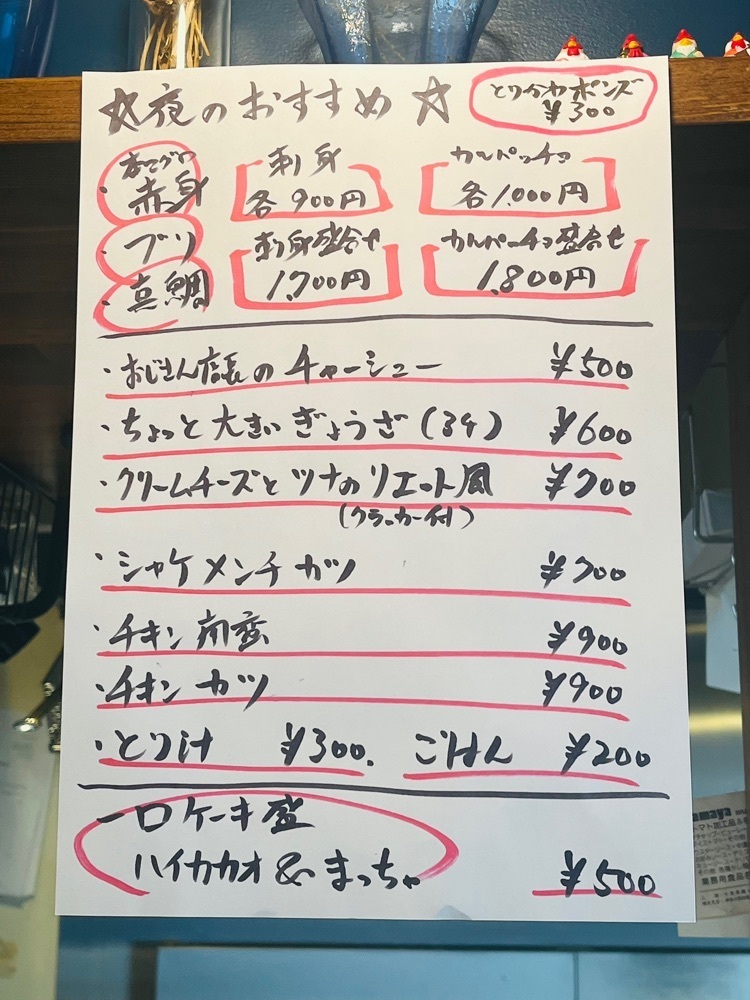 ☆夜のおすすめ☆
とりかわポンズ
¥300
本マグロ
・赤身
・ブリ
・真鯛
刺身
各900円
カルパッチョ
各1.000円
刺身盛合せ
1.700円
カルパッチョ盛合せ
1.800円
・おじさん店長のチャーシュー ¥500
・ちょっと大きいぎょうざ(3ケ) ¥600
・クリームチーズとツナのリエット風 ¥700
(クラッカー付)
・シャケメンチカツ ¥700
・チキン南蛮 ¥900
・チキンカツ ¥900
・とり汁 ¥300. ごはん ¥200
一口ケーキ盛
ハイカカオ&まっちゃ ¥500
amaya
トマト加工品
業務用食品